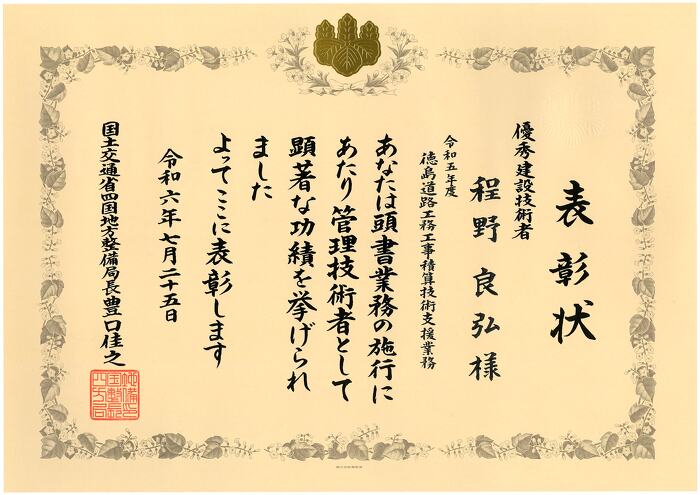 表彰状
優秀建設技術者
程野良弘様
令和五年度
徳島道路工務工事積算技術支援業務
あなたは頭書業務の施行に
あたり管理技術者として
顕著な功績を挙げられ
ました
よってここに表彰します
令和六年七月二十五日
国土交通省四国地方整備局長豊口佳之